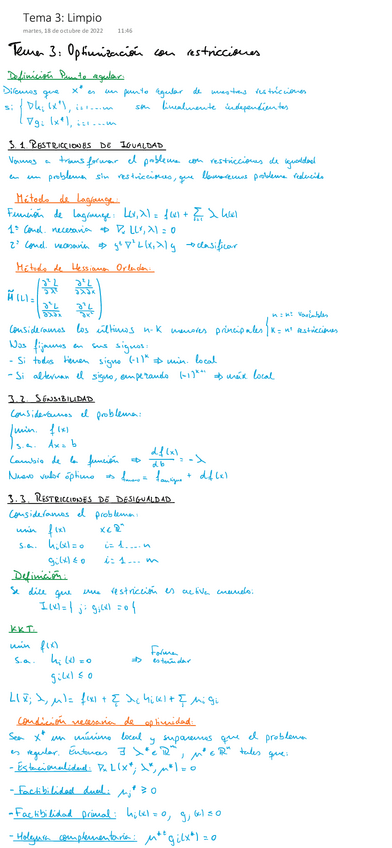 Tema 3: Limpio
martes, 18 de octubre de 2022 11:46
Tema 3: Optimización con restricciones
Definición Punto regular:
Diremos que x* es un punto regular de nuestras restricciones
si { ∇hᵢ (x*), i=1...m son linealmente independientes
∇gⱼ (x*), i=1...m
3.1. RESTRICCIONES DE IGUALDAD
Vamos a transformar el problema con restricciones de igualdad
en un problema sin restricciones, que llamaremos problema reducido
Método de Lagrange:
Función de Lagrange: L(x,λ) = f(x) + Σ λ h(x)
1ª Cond. necesaria ⇒ ∇ₓ L(x,λ) = 0
2ª Cond. necesaria ⇒ yᵗ ∇² L(x,λ) y → clasificar
Método de Hessiana Orlada:
H̃ (L) = ( ∂²L/∂λ² ∂²L/∂λ∂x
∂²L/∂λ∂x ∂²L/∂x² )
Consideramos los últimos n-k menores principales { n = nº variables
k = nº restricciones
Nos fijamos en sus signos:
- Si todos tienen signo (-1)ᵏ ⇒ min. local
- Si alternan el signo, empezando (-1)ᵏ⁺¹ ⇒ máx local
3.2. SENSIBILIDAD
Consideramos el problema:
{ min. f(x)
s.a. Ax = b
Cambio de la función ⇒ df(x)/db = -λ
Nuevo valor óptimo ⇒ f = f + df(x)
3.3. RESTRICCIONES DE DESIGUALDAD
Consideramos el problema:
min f(x) x∈ℝⁿ
s.a. hᵢ(x) = 0 i = 1....m
gⱼ(x) ≤ 0
Definición:
Se dice que una restricción es activa cuando:
I(x) = { j: gⱼ(x) = 0 }
KKT:
min f(x)
s.a. hᵢ(x) = 0 ⇒ Forma estándar
gⱼ(x) ≤ 0
L(x; λ, μ) = f(x) + Σ λᵢ hᵢ(x) + Σ μⱼ gⱼ
Condición necesaria de optimidad:
Sea x* un mínimo local y supongamos que el problema
es regular. Entonces ∃ λ* ∈ ℝᵐ, μ* ∈ ℝⁿ tales que:
- Estacionalidad: ∇ₓ L(x*, λ*, μ*) = 0
- Factibilidad dual: μⱼ* ≥ 0
- Factibilidad primal: hᵢ(x) = 0, gⱼ(x) ≤ 0
- Holgura complementaria: μ* gⱼ(x*) = 0